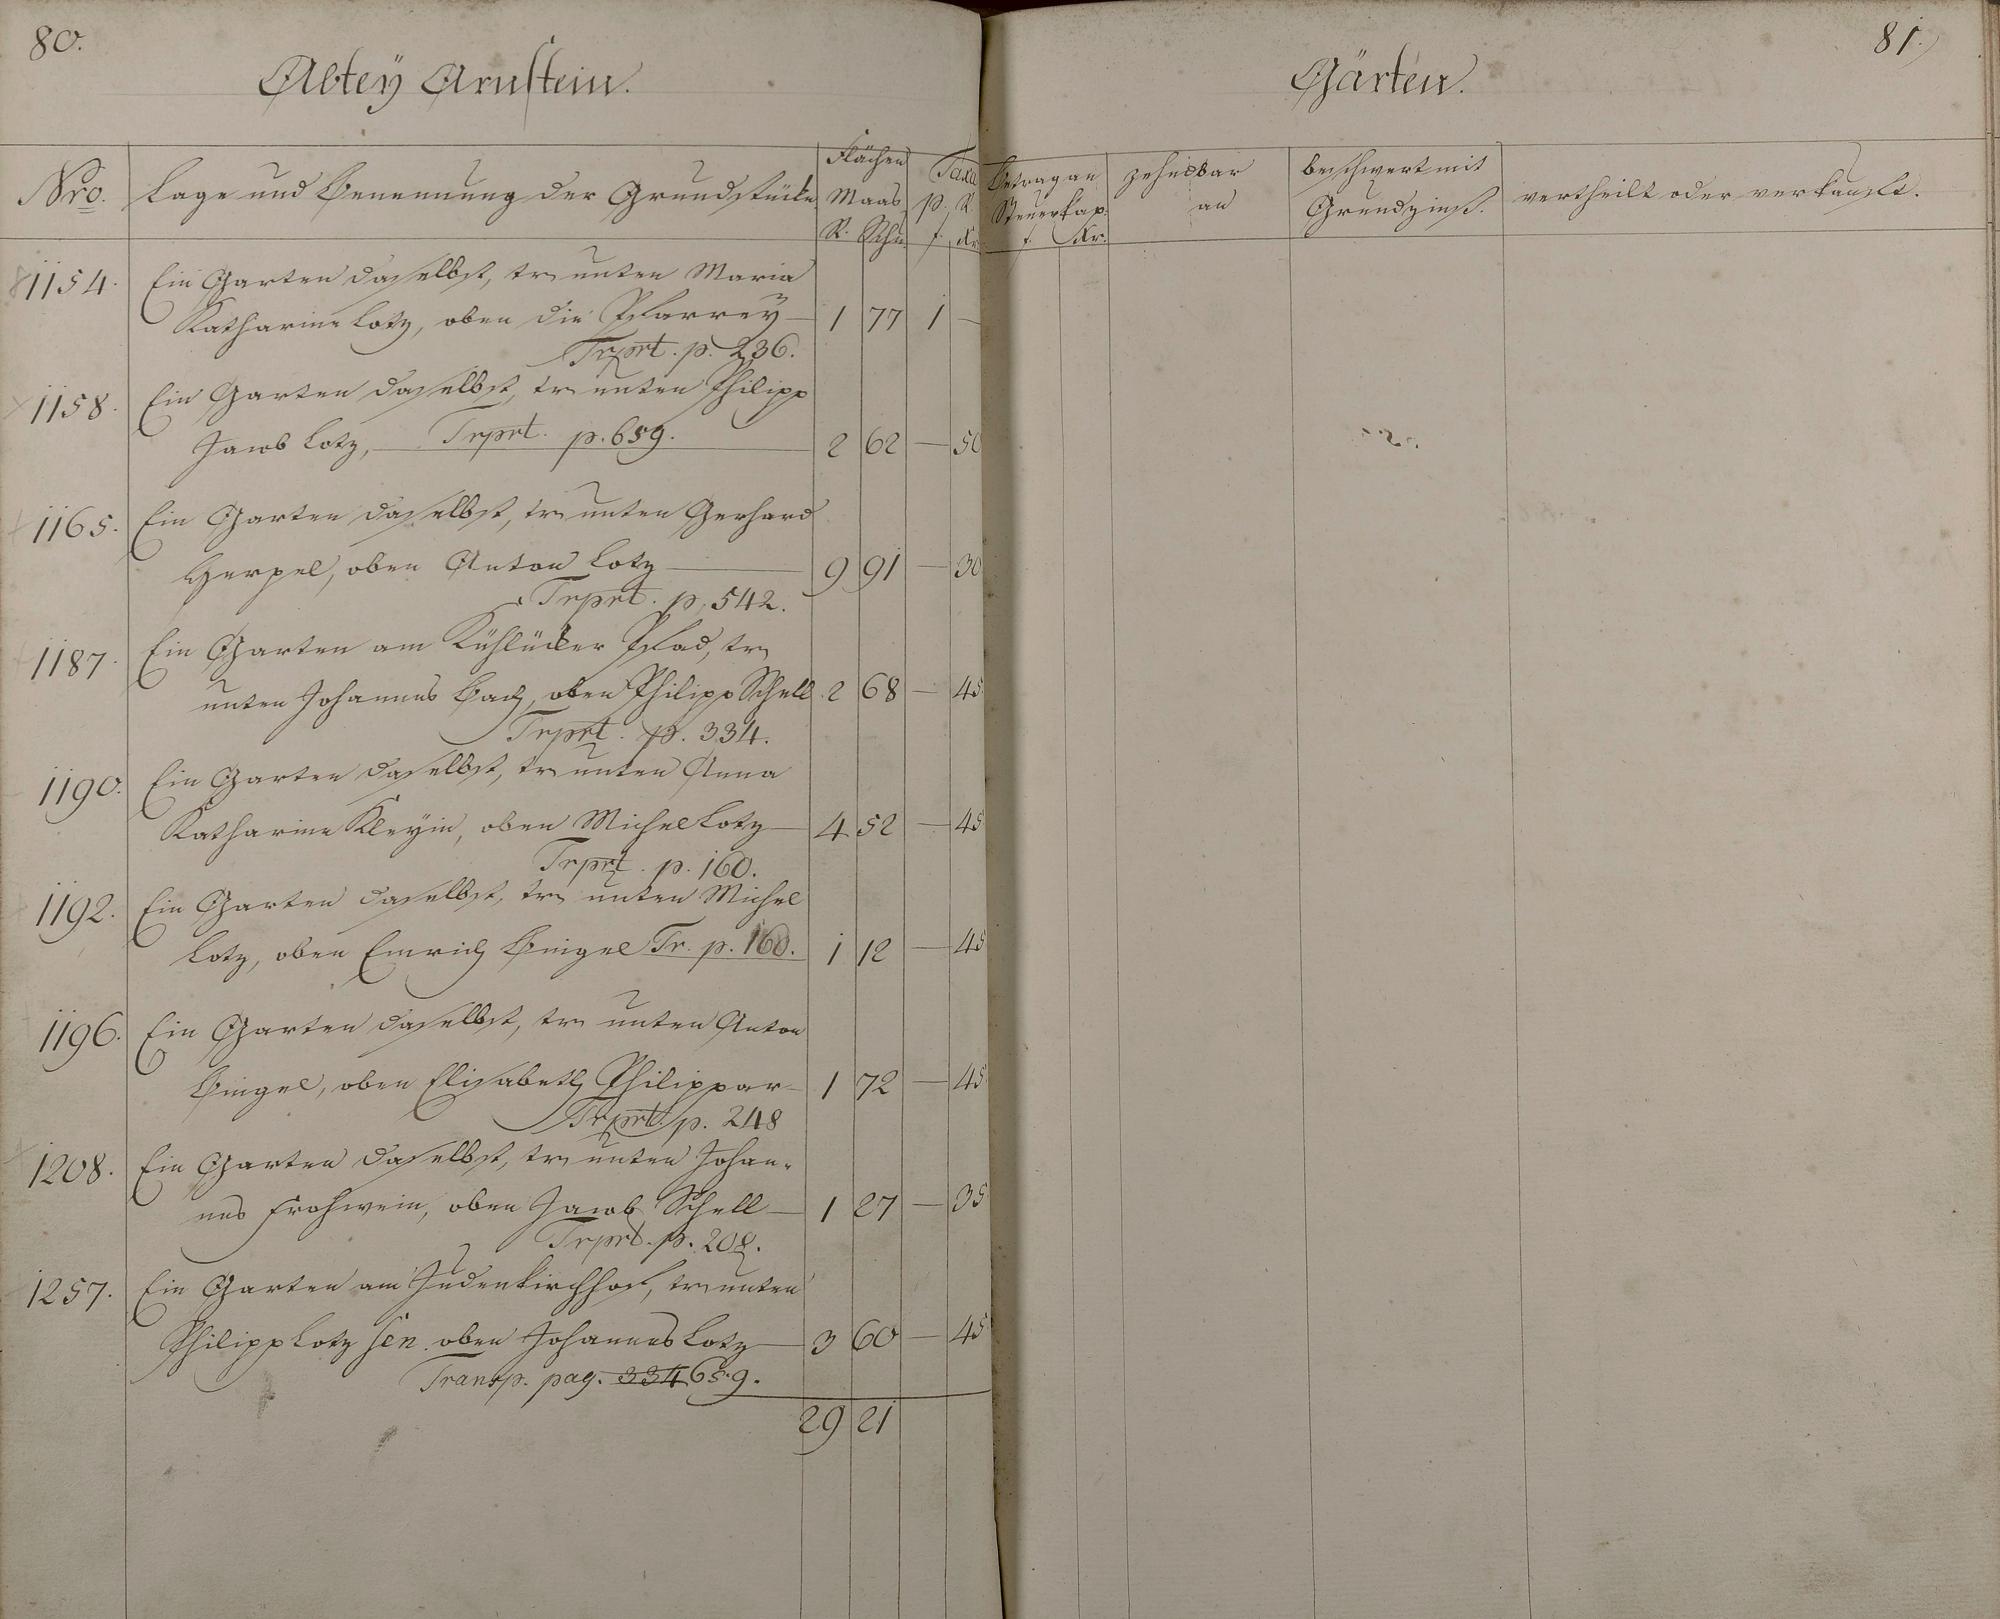 80.
Abteÿ Arnstein.
Nro.
Lage und Benennung der Grundstücke
Flächen
Maas
R. Schu.
Taxa
p. R.
f. Kr.
1154. Ein Garten daselbst, tr. unten Maria
Katharine Lotz, oben die Pfarreÿ — 1 77 1 —
Trprt. p. 236.
1158. Ein Garten daselbst, tr. unten Philipp
Jacob Lotz, — Trprt. p. 659. 2 62 — 50
1165. Ein Garten daselbst, tr. unten Gerhard
Herpel, oben Anton Lotz — 9 91 — 30
Trprt. p. 542.
1187. Ein Garten am Kühlücker Pfad, tr.
unten Johannes Bach, oben Philipp Schell 2 68 — 45
Trprt. p. 334.
1190. Ein Garten daselbst, tr. unten Anna
Katharine Kleÿin, oben Michel Lotz — 4 52 — 45
Trprt. p. 160.
1192. Ein Garten daselbst, tr. unten Michel
Lotz, oben Emrich Bingel Tr. p. 160. 1 12 — 45
1196. Ein Garten daselbst, tr. unten Anton
Bingel, oben Elisabeth Philippar — 1 72 — 45
Trprt. p. 248
1208. Ein Garten daselbst, tr. unten Johan-
nes Frohwein, oben Jacob Schell — 1 27 — 35
Trprt. p. 208.
1257. Ein Garten am Judenkirchhof, tr. unten
Philipp Lotz sen. oben Johannes Lotz — 3 60 — 45
Transp. pag. 334 659.
29 21
81.
Gärten.
Betrag an
Steuerkap.
f. Kr.
zehndbar
an
beschwert mit
Grundzinß.
vertheilt oder verkauft.